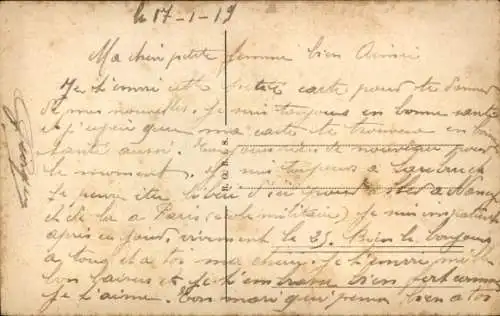 le 17-1-19
Ma chère petite femme bien Aimée
Je t'envoi cette petite carte pour te donner
de mes nouvelles. Je suis toujours en bonne santé
et j'espère que ma carte te trouvera en bonne
santé aussi. Toujours rien de nouveau pour
le moment. Je suis toujours a
Je pense être libéré d'ici pour
et de la a Paris (école militaire) Je suis impatient
après ce jour, vivement le 25. Bien le bonjour
a tous et a toi ma chérie. Je t'envoi mille
bon baisers et Je t'embrasse bien fort comme
Je t'aime. Ton mari qui pense bien a toi
Georges